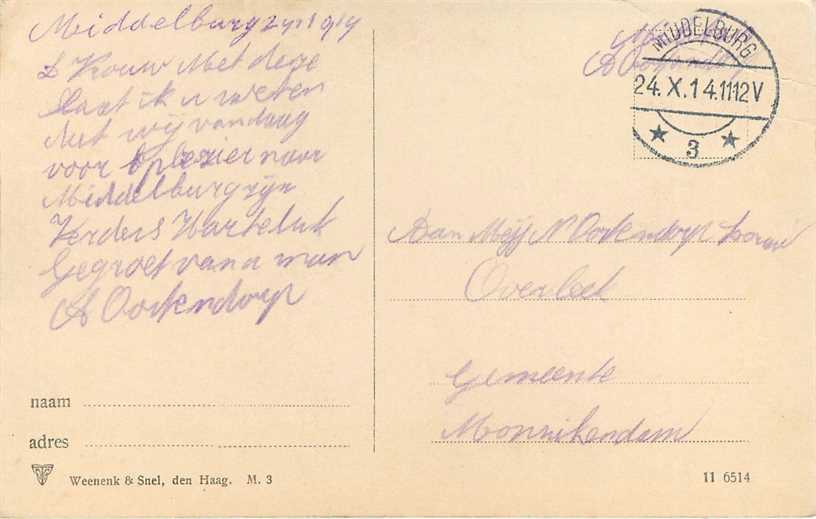 Middelburg 24 1914
L Vrouw Met deze
Laat ik u weten
dat wij vandaag
voor plezier naar
Middelburg zijn
Verders Harteluk
Gegroet van u man
A Oostendorp
MIDDELBURG
24.X.14.11-12V
3
Aan Mej N Oostendorp
Overleek
Gemeente
Monnikendam
naam
adres
Weenenk & Snel, den Haag. M. 3
11 6514